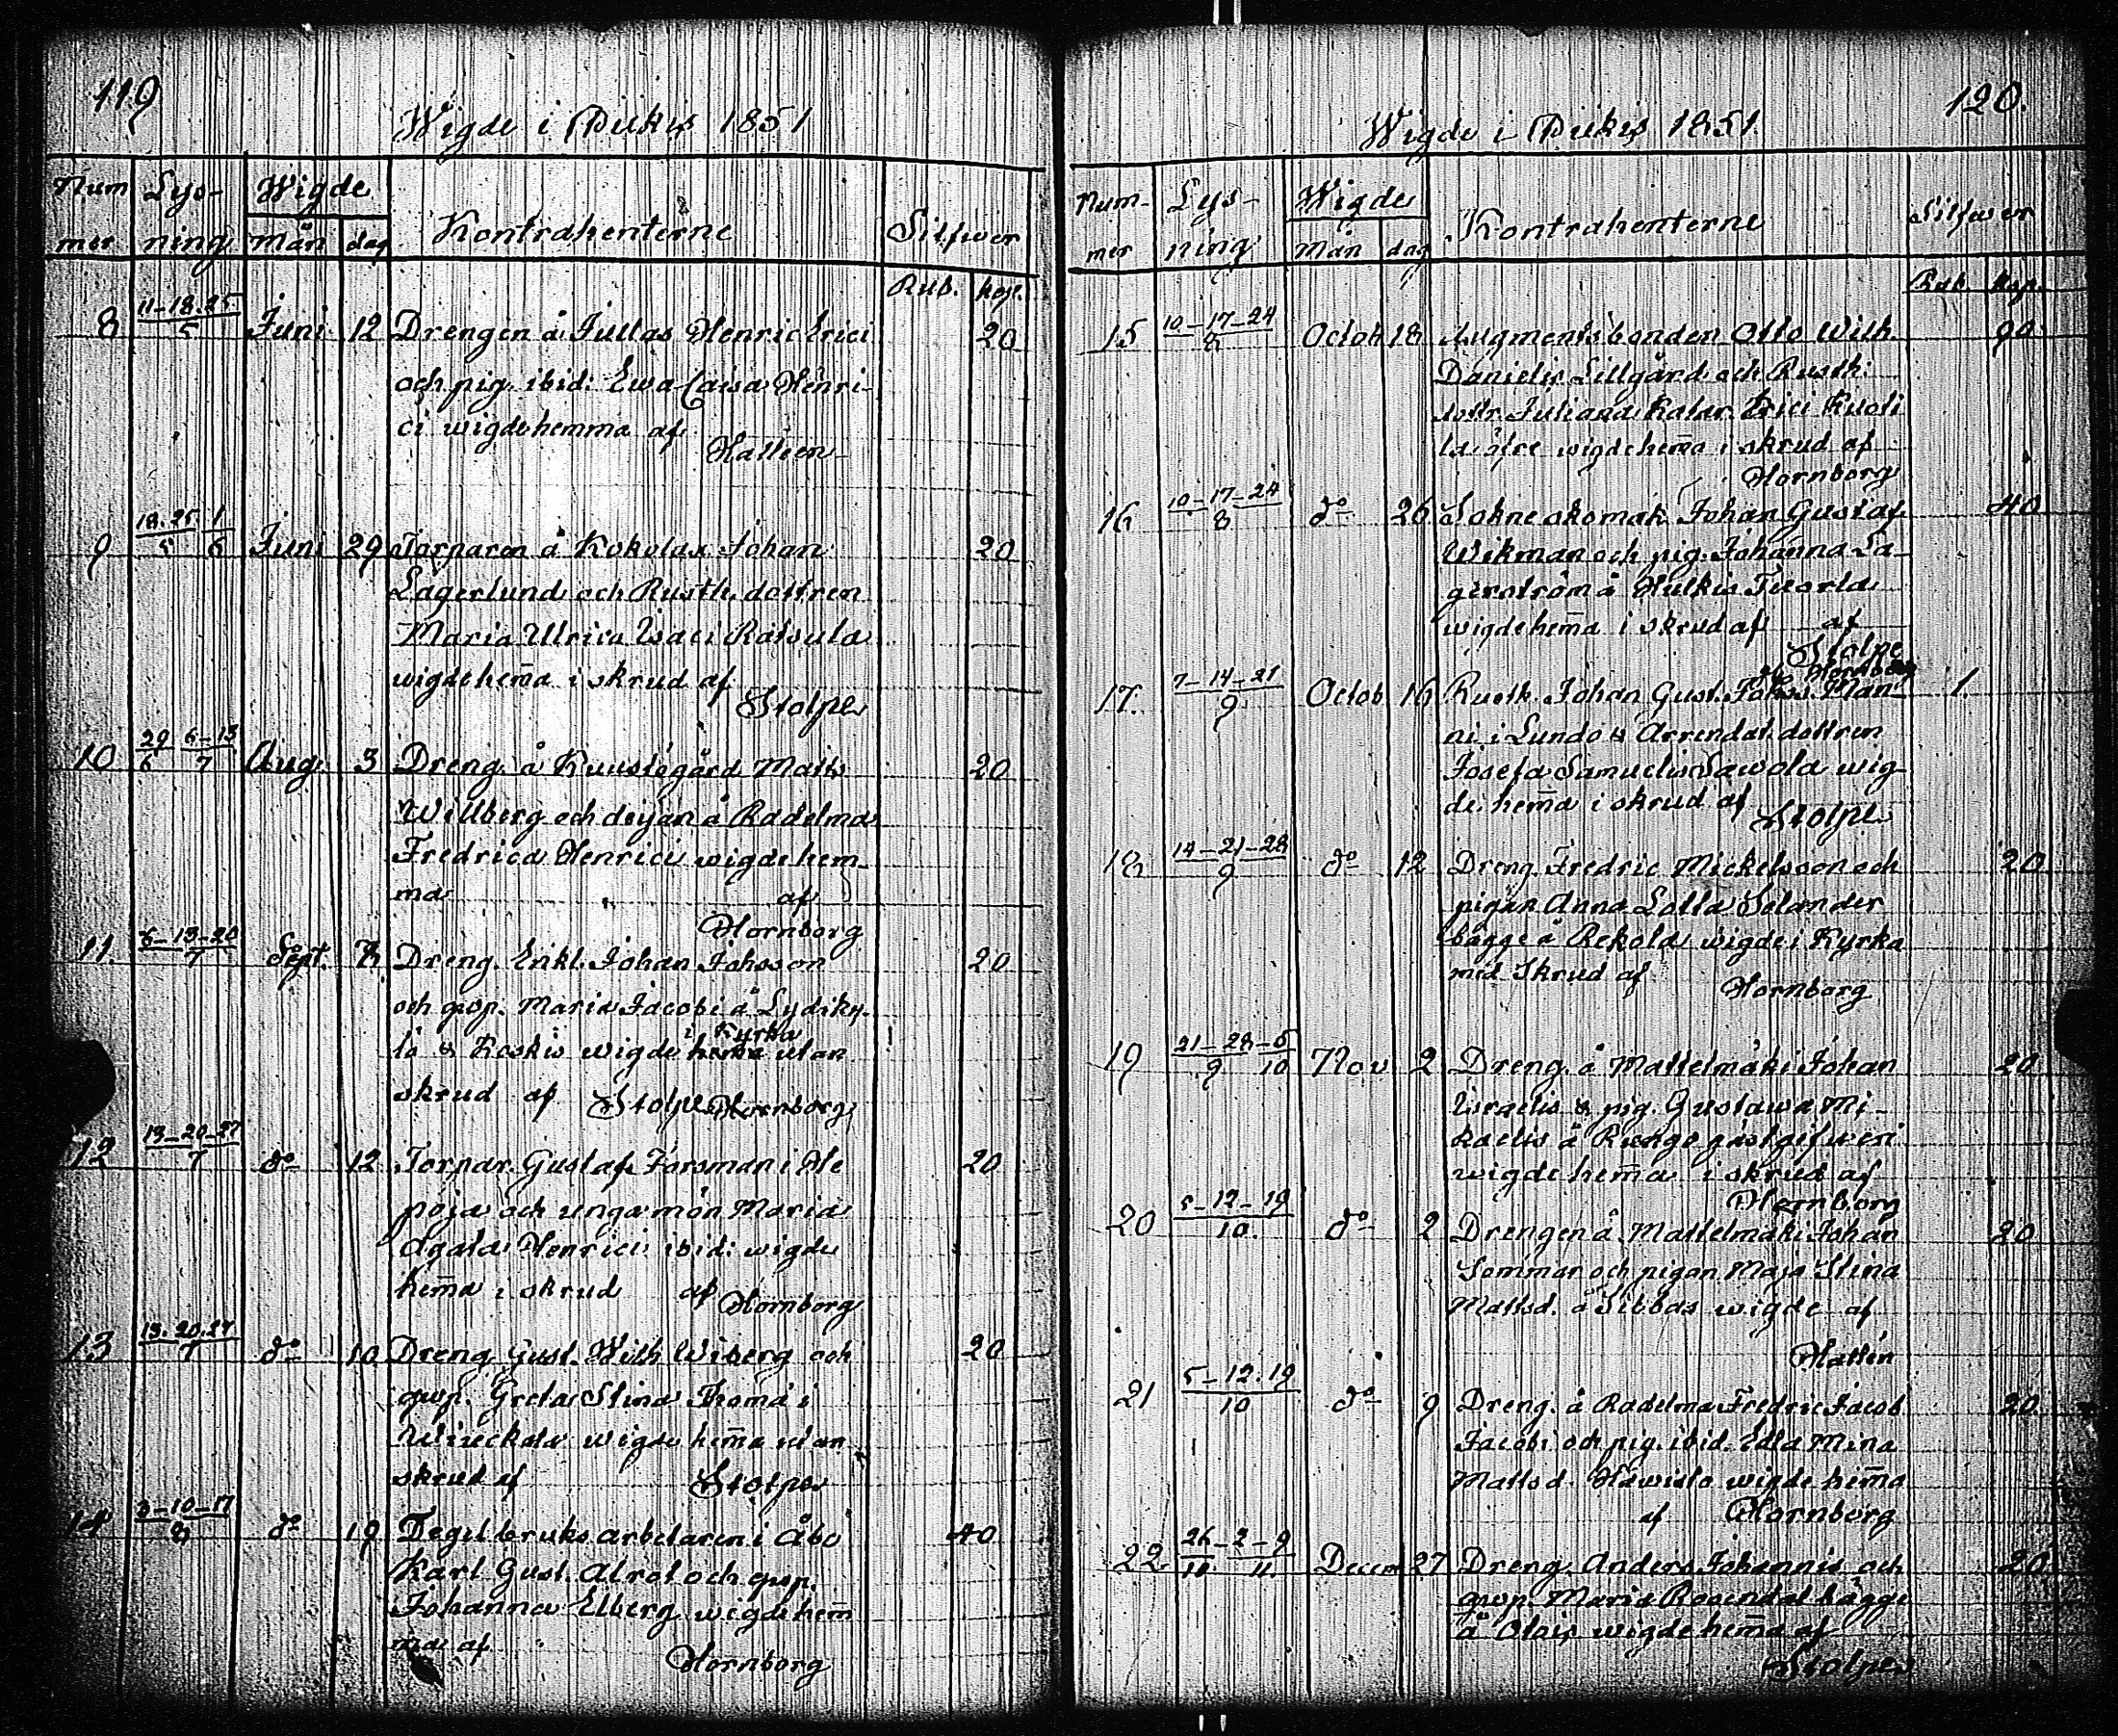 119
Wigde i Piikis 1851
Num
mer
Lys-
ning
Wigde
mån dag
Kontrahenterne
Silfwer
Rub. kop.
8 11-18.25/5 Juni 12 Drengen å Jullas Henric Erici 20
och pig. ibid: Ewa Caisa Henri-
ci wigde hemma af
Halleen
9 18.25/5 1/6 Juni 29 Torparen å Kokolax Johan 20
Lagerlund och Rusth. dottren
Maria Ulrica Isaci Raisula
wigde hem̄a i skrud af
Stolpe
10 29/6 6-13/7 Aug. 3 Dreng. å Kuustögård Matts 20
Willberg och dejan å Radelma
Fredrica Henrici wigde hem-
ma af
Hornborg
11. 6-13-20/7 Sept. 7 Dreng. Enkl. Johan Johsson 20
och qwp. Maria Jacobi å Lydiky-
lä & Koskis wigde i Kyrka utan
skrud af Stolpe Hornborg
12 13-20-27/7 do 12 Torpar. Gustaf Forsman i He 20
poja och unga mön Maria
Agata Henrici ibid: wigde
hem̄a i skrud af Hornborg
13 13.20.27/7 do 10 Dreng Gust. Wilh Wiberg och 20
qwp. Greta Stina Thomæ i
wigde hem̄a utan
skrud af Stolpe
14 3-10-17/8 do 19 Tegelbruks arbetaren i Åbo 40
Karl Gust. Alrot och qwp.
Johanna Elberg wigde hem̄
ma af
Hornborg
120.
Wigde i Piikis 1851.
Num-
mer
Lys-
ning
Wigde
Mån dag
Kontrahenterne
Silfwer
Rub. kop.
15 10-17-24/8 Octob 18 Augmentsbonden Otto Wilh. 90
Danielis Lillgård och Rusth:
dottr. Juliana Katar. Erici Kuoti
la öfre wigde hem̄a i skrud af
Hornborg
16 10-17-24/8 do 26 Sokne skomak. Johan Gustaf 40
Wikman och pig. Johanna La-
gerström å Hulkis Tuorla
wigde hem̄a i skrud af af
Stolpe
Hornborg
17. 7-14-21/9 Octob 16 Rusth. Johan Gust. Johss. Man 1.
ni i Lundo & Arrendat. dottren
Josefa Samuelis Sawola wig-
de hem̄a i skrud af
Stolpe
18 14-21-28/9 do 12 Dreng. Fredric Mickelsson och 20
pigan Anna Lotta Selander
bägge å Rekola wigde i Kyrka
med Skrud af
Hornborg
19 21-28/9 -5/10 Nov 2 Dreng. å Mattelmäki Johan 20
Israelis & pig. Gustawa Mi-
kaelis å Runga gästgifweri
wigde hem̄a i skrud af
Hornborg
20 5-12-19/10. do 2 Drengen å Mattelmäki Johan 20
Sommar och pigan Maja Stina
Mattsd. å Sibbas wigde af
Hallén
21 5-12.19/10 do 9 Dreng. å Radelma Fredric Jacob 20
Jacobi och pig. ibid. Edla Mina
Mattsd. Hawisto wigde hem̄a
af Hornborg
22. 26/10 -2-9/11. Decem 27 Dreng. Anders Johannis och 20
qwp. Maria Rosendal bägge
å wigde hem̄a af
Stolpe